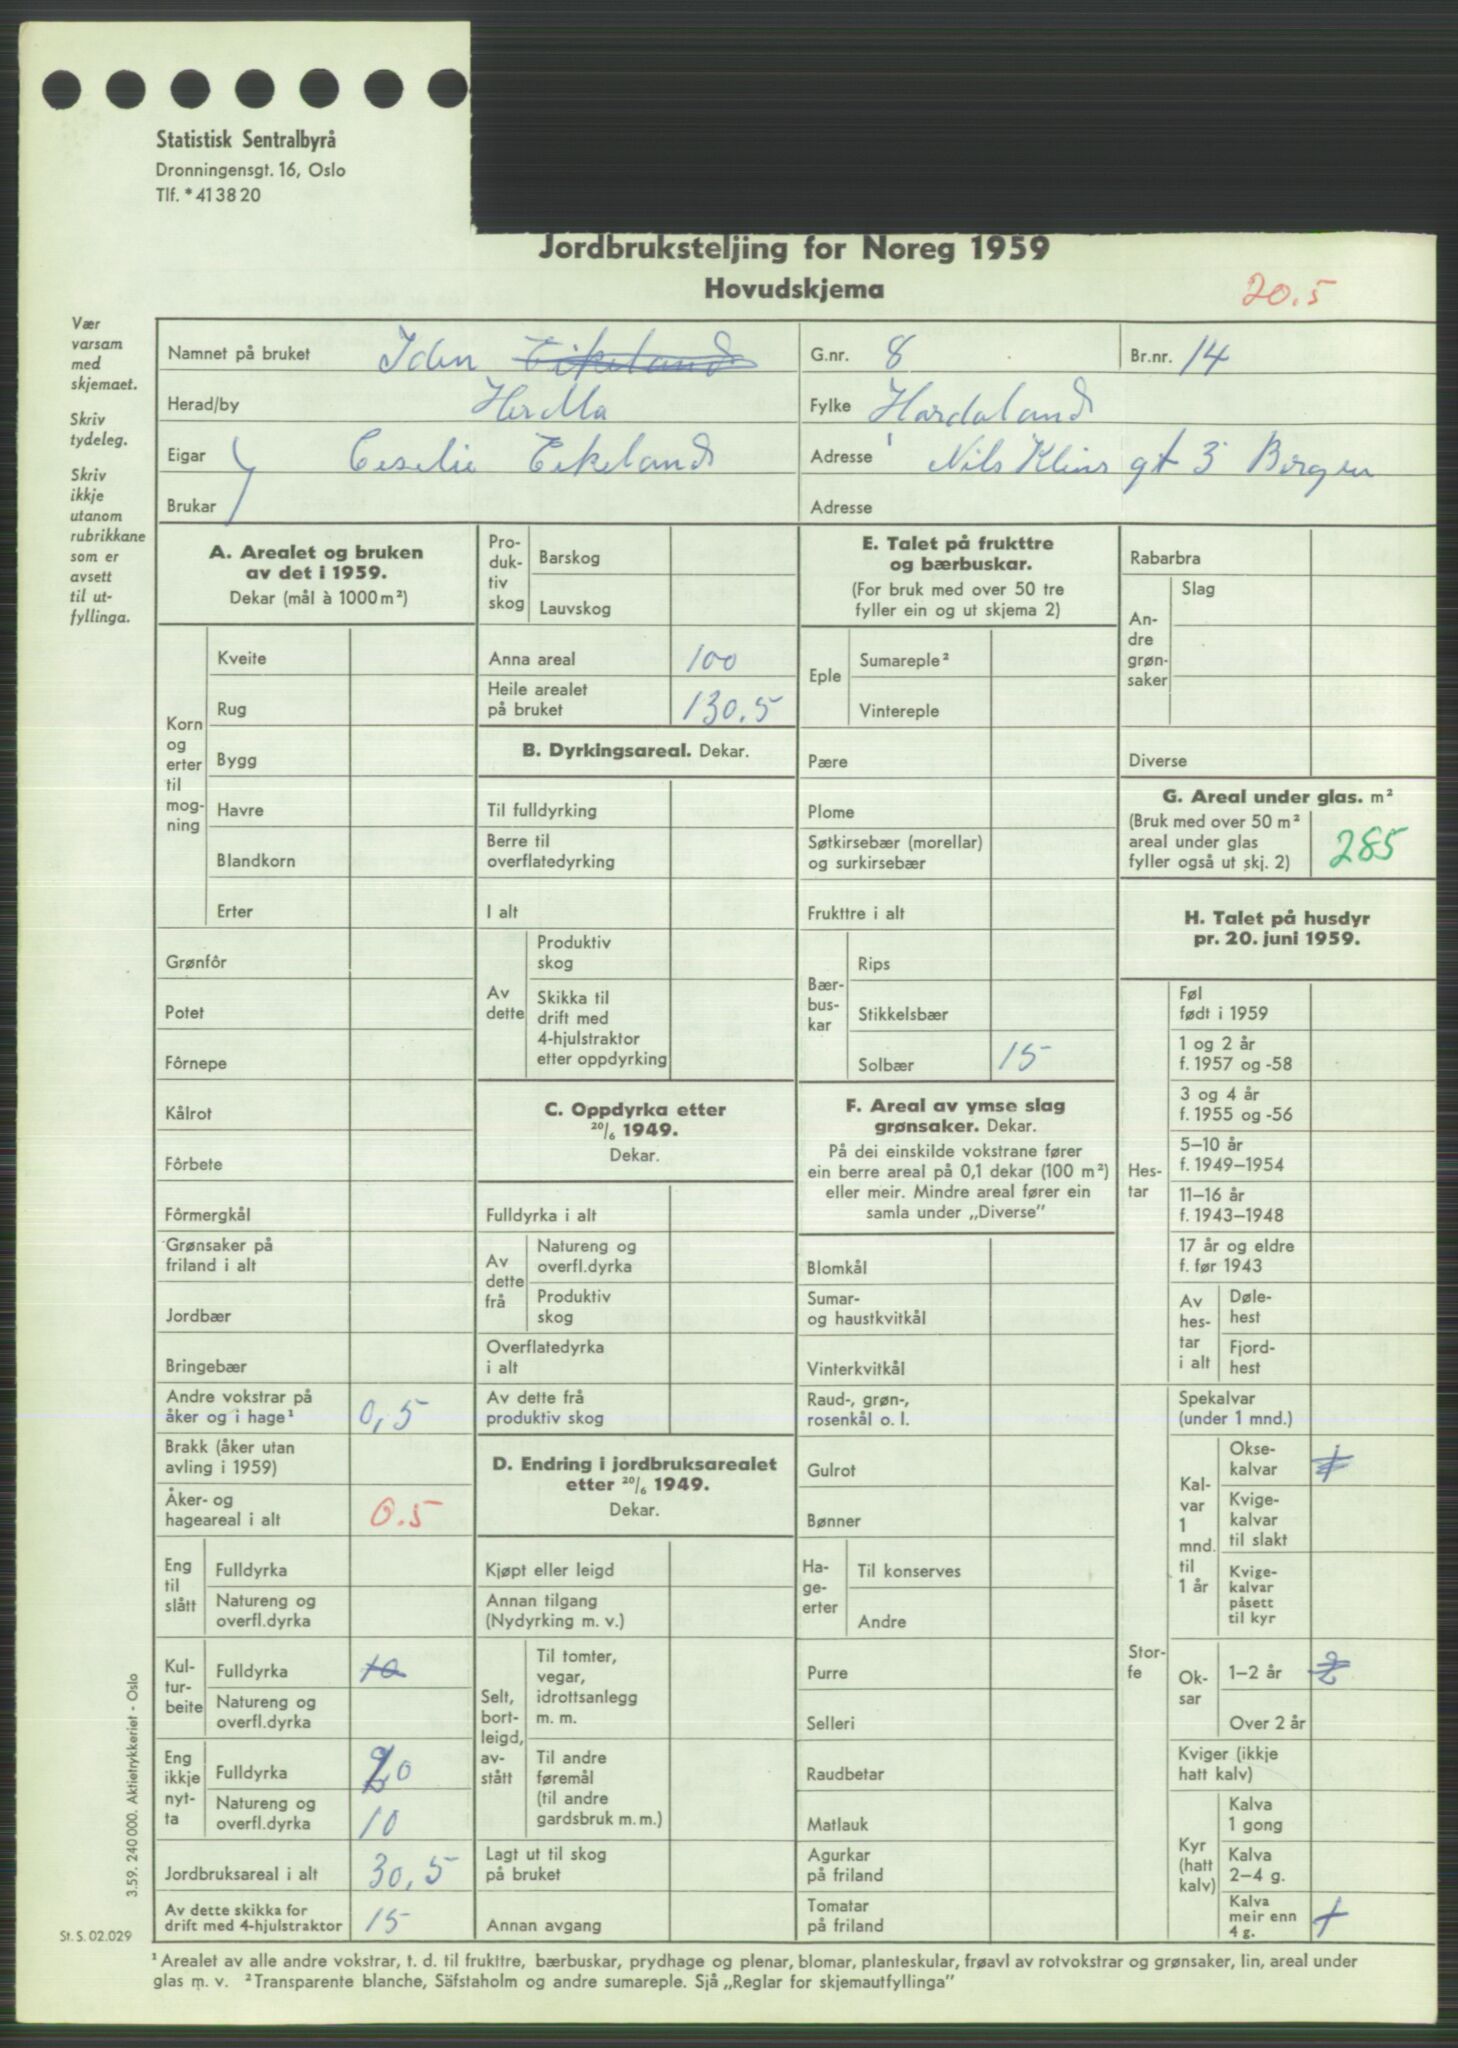 Statistisk Sentralbyrå
Dronningensgt. 16, Oslo
Tlf. * 41 38 20
Jordbruksteljing for Noreg 1959
Hovudskjema
20.5
Vær
varsam
med
skjemaet.
Skriv
tydeleg.
Skriv
ikkje
utanom
rubrikkane
som er
avsett
til ut-
fyllinga.
Namnet på bruket Eikeland G.nr. 8 Br.nr. 14
Herad/by Herdla Fylke Hordaland
Eigar Eikeland Adresse Nils Klims gt 3 Bergen
Brukar Adresse
A. Arealet og bruken
av det i 1959.
Dekar (mål à 1000 m²)
Korn
og
erter
til
mog-
ning
Kveite
Rug
Bygg
Havre
Blandkorn
Erter
Grønfôr
Potet
Fôrnepe
Kålrot
Fôrbete
Fôrmergkål
Grønsaker på
friland i alt
Jordbær
Bringebær
Andre vokstrar på
åker og i hage¹ 0,5
Brakk (åker utan
avling i 1959)
Åker- og
hageareal i alt 0.5
Eng
til
slått
Fulldyrka
Natureng og
overfl.dyrka
Kul-
tur-
beite
Fulldyrka 10
Natureng og
overfl.dyrka
Eng
ikkje
nyt-
ta
Fulldyrka 20
Natureng og
overfl.dyrka 10
Jordbruksareal i alt 30,5
Av dette skikka for
drift med 4-hjulstraktor 15
Pro-
duk-
tiv
skog
Barskog
Lauvskog
Anna areal 100
Heile arealet
på bruket 130.5
B. Dyrkingsareal. Dekar.
Til fulldyrking
Berre til
overflatedyrking
I alt
Av
dette
Produktiv
skog
Skikka til
drift med
4-hjulstraktor
etter oppdyrking
C. Oppdyrka etter
20/6 1949.
Dekar.
Fulldyrka i alt
Av
dette
frå
Natureng og
overfl.dyrka
Produktiv
skog
Overflatedyrka
i alt
Av dette frå
produktiv skog
D. Endring i jordbruksarealet
etter 20/6 1949.
Dekar.
Kjøpt eller leigd
Annan tilgang
(Nydyrking m. v.)
Selt,
bort-
leigd,
av-
stått
Til tomter,
vegar,
idrottsanlegg
m. m.
Til andre
føremål
(til andre
gardsbruk m. m.)
Lagt ut til skog
på bruket
Annan avgang
E. Talet på frukttre
og bærbuskar.
(For bruk med over 50 tre
fyller ein og ut skjema 2)
Eple
Sumareple²
Vintereple
Pære
Plome
Søtkirsebær (morellar)
og surkirsebær
Frukttre i alt
Bær-
bus-
kar
Rips
Stikkelsbær
Solbær 15
F. Areal av ymse slag
grønsaker. Dekar.
På dei einskilde vokstrane fører
ein berre areal på 0,1 dekar (100 m²)
eller meir. Mindre areal fører ein
samla under „Diverse”
Blomkål
Sumar-
og haustkvitkål
Vinterkvitkål
Raud-, grøn-,
rosenkål o. l.
Gulrot
Bønner
Ha-
ge-
erter
Til konserves
Andre
Purre
Selleri
Raudbetar
Matlauk
Agurkar
på friland
Tomatar
på friland
Rabarbra
An-
dre
grøn-
saker
Slag
Diverse
G. Areal under glas. m²
(Bruk med over 50 m²
areal under glas
fyller også ut skj. 2) 285
H. Talet på husdyr
pr. 20. juni 1959.
Hes-
tar
Føl
født i 1959
1 og 2 år
f. 1957 og -58
3 og 4 år
f. 1955 og -56
5–10 år
f. 1949–1954
11–16 år
f. 1943–1948
17 år og eldre
f. før 1943
Av
hes-
tar
i alt
Døle-
hest
Fjord-
hest
Stor-
fe
Spekalvar
(under 1 mnd.)
Kal-
var
1
mnd.
til
1 år
Okse-
kalvar
Kvige-
kalvar
til slakt
Kvige-
kalvar
påsett
til kyr
Ok-
sar
1–2 år 2
Over 2 år
Kviger (ikkje
hatt kalv)
Kyr
(hatt
kalv)
Kalva
1 gong
Kalva
2–4 g.
Kalva
meir enn
4 g.
3.59. 240 000. Aktietrykkeriet - Oslo
St. S. 02.029
¹ Arealet av alle andre vokstrar, t. d. til frukttre, bærbuskar, prydhage og plenar, blomar, planteskular, frøavl av rotvokstrar og grønsaker, lin, areal under
glas m. v. ² Transparente blanche, Säfstaholm og andre sumareple. Sjå „Reglar for skjemautfyllinga”